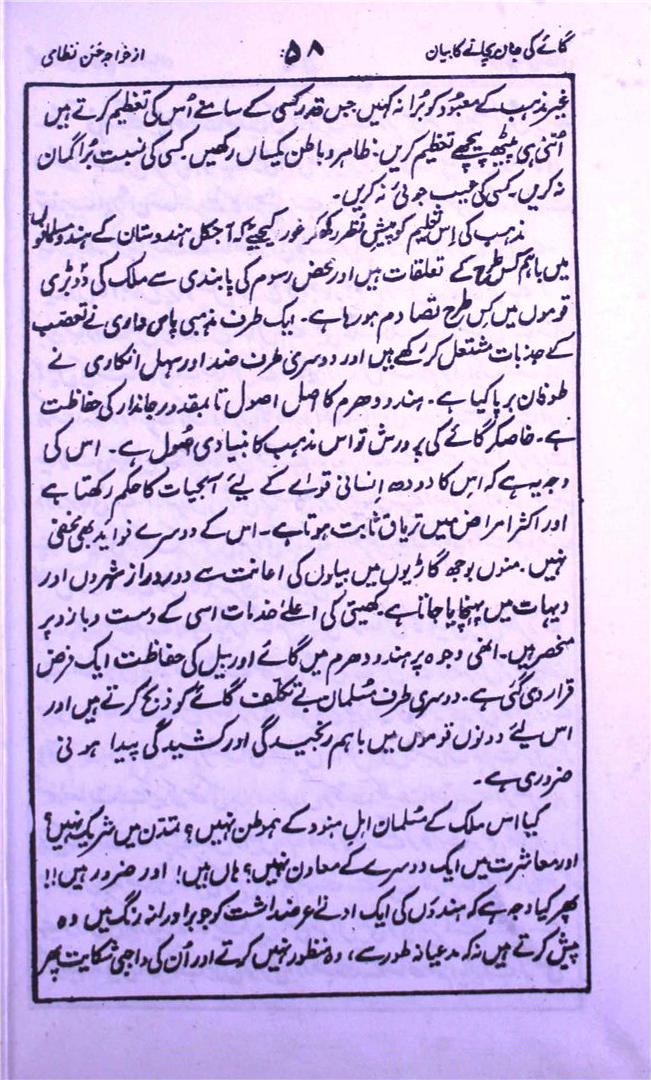 گائے کی جان بچانے کا بیان ۵۸ از خواجہ حسن نظامی
غیر مذہب کے معبود کو برا نہ کہیں جس قدر کسی کے سامنے اُس کی تعظیم کرتے ہیں
اُتنی ہی پیٹھ پیچھے تعظیم کریں۔ ظاہر و باطن یکساں رکھیں۔ کسی کی نسبت بُرا گمان
نہ کریں۔ کسی کی عیب جوئی نہ کریں۔
مذہب کی اِس تعلیم کو پیش نظر رکھ کر غور کیجیے کہ آجکل ہندوستان کے ہندو مسلمانوں
میں باہم کس طرح کے تعلقات ہیں اور محض رسوم کی پابندی سے ملک کی دو بڑی
قوموں میں کس طرح تصادم ہو رہا ہے۔ ایک طرف مذہبی پاس داری نے تعصب
کے جذبات مشتعل کر رکھے ہیں اور دوسری طرف ضد اور سہل انکاری نے
طوفان برپا کیا ہے۔ ہندو دھرم کا اصل اصول تا بمقدور جاندار کی حفاظت
ہے۔ خاصکر گائے کی پرورش تو اس مذہب کا بنیادی اصول ہے۔ اس کی
وجہ یہ ہے کہ اس کا دودھ انسانی قواے کے لیے آبحیات کا حکم رکھتا ہے
اور اکثر امراض میں تریاق ثابت ہوتا ہے۔ اس کے دوسرے فواید بھی مخفی
نہیں۔ منوں بوجھ گاڑیوں میں بیلوں کی اعانت سے دور دراز شہروں اور
دیہات میں پہنچایا جاتا ہے۔ کھیتی کی اعلےٰ خدمات اسی کے دست و بازو پر
منحصر ہیں۔ انھی وجوہ پر ہندو دھرم میں گائے اور بیل کی حفاظت ایک فرض
قرار دی گئی ہے۔ دوسری طرف مسلمان بے تکلف گائے کو ذبح کرتے ہیں اور
اس لیے دونوں قوموں میں باہم رنجیدگی اور کشیدگی پیدا ہونی
ضروری ہے۔
کیا اس ملک کے مسلمان اہل ہنود کے ہموطن نہیں؟ تمدن میں شریک نہیں؟
اور معاشرت میں ایک دوسرے کے معاون نہیں؟ ہاں ہیں! اور ضرور ہیں!!
پھر کیا وجہ ہے کہ ہندوؤں کی ایک ادنےٰ عرضداشت کو جو برادرانہ رنگ میں وہ
پیش کرتے ہیں نہ کہ مدعیانہ طور سے، وہ منظور نہیں کرتے اور اُن کی واجبی شکایت پر